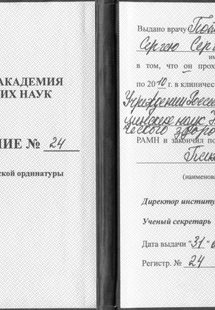 АКАДЕМИЯ
ИХ НАУК
НИЕ № 24
ской ординатуры
Выдано врачу
Сергею Сер
им
в том, что он прох
по 2010 г. в клиническ
Учреждении Россий
РАМН и закончил по
(наименов
Директор институ
Ученый секретарь
Дата выдачи "31"
Регистр. № 24